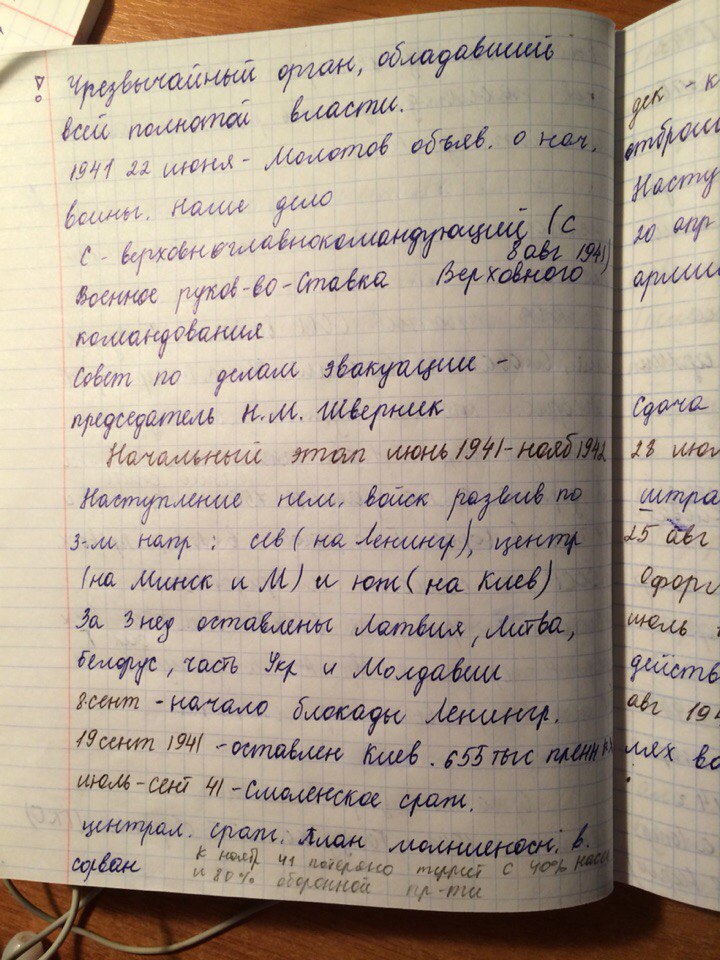 Чрезвычайный орган, обладавшей
всей полнотой власти.
1941 22 июня - Молотов объяв. о нач.
войны. Наше дело
С - верховноглавнокомандующий (с
8 авг 1941)
Военное руков-во - Ставка Верховного
командования
Совет по делам эвакуации -
председатель Н.М. Шверник
Начальный этап июнь 1941 - нояб 1942
Наступление нем. войск развив по
3-м напр: сев (на Ленингр), центр
(на Минск и М) и юж (на Киев)
За 3 нед оставлены Латвия, Литва,
белорус, часть Укр и Молдавии
8 сент - начало блокады Ленингр.
19 сент 1941 - оставлен Киев. 655 тыс пленных
июль-сент 41 - Смоленское сраж.
централ. сраж. План молниеносн. в.
сорван
к нояб 41 потеряно террит с 40% насел
и 80% оборонной пр-ти
дек - к
отброш
Насту
20 апр
армии
Сдача
28 июл
штра
25 авг
Офор
июль
действ
авг 194
лях во